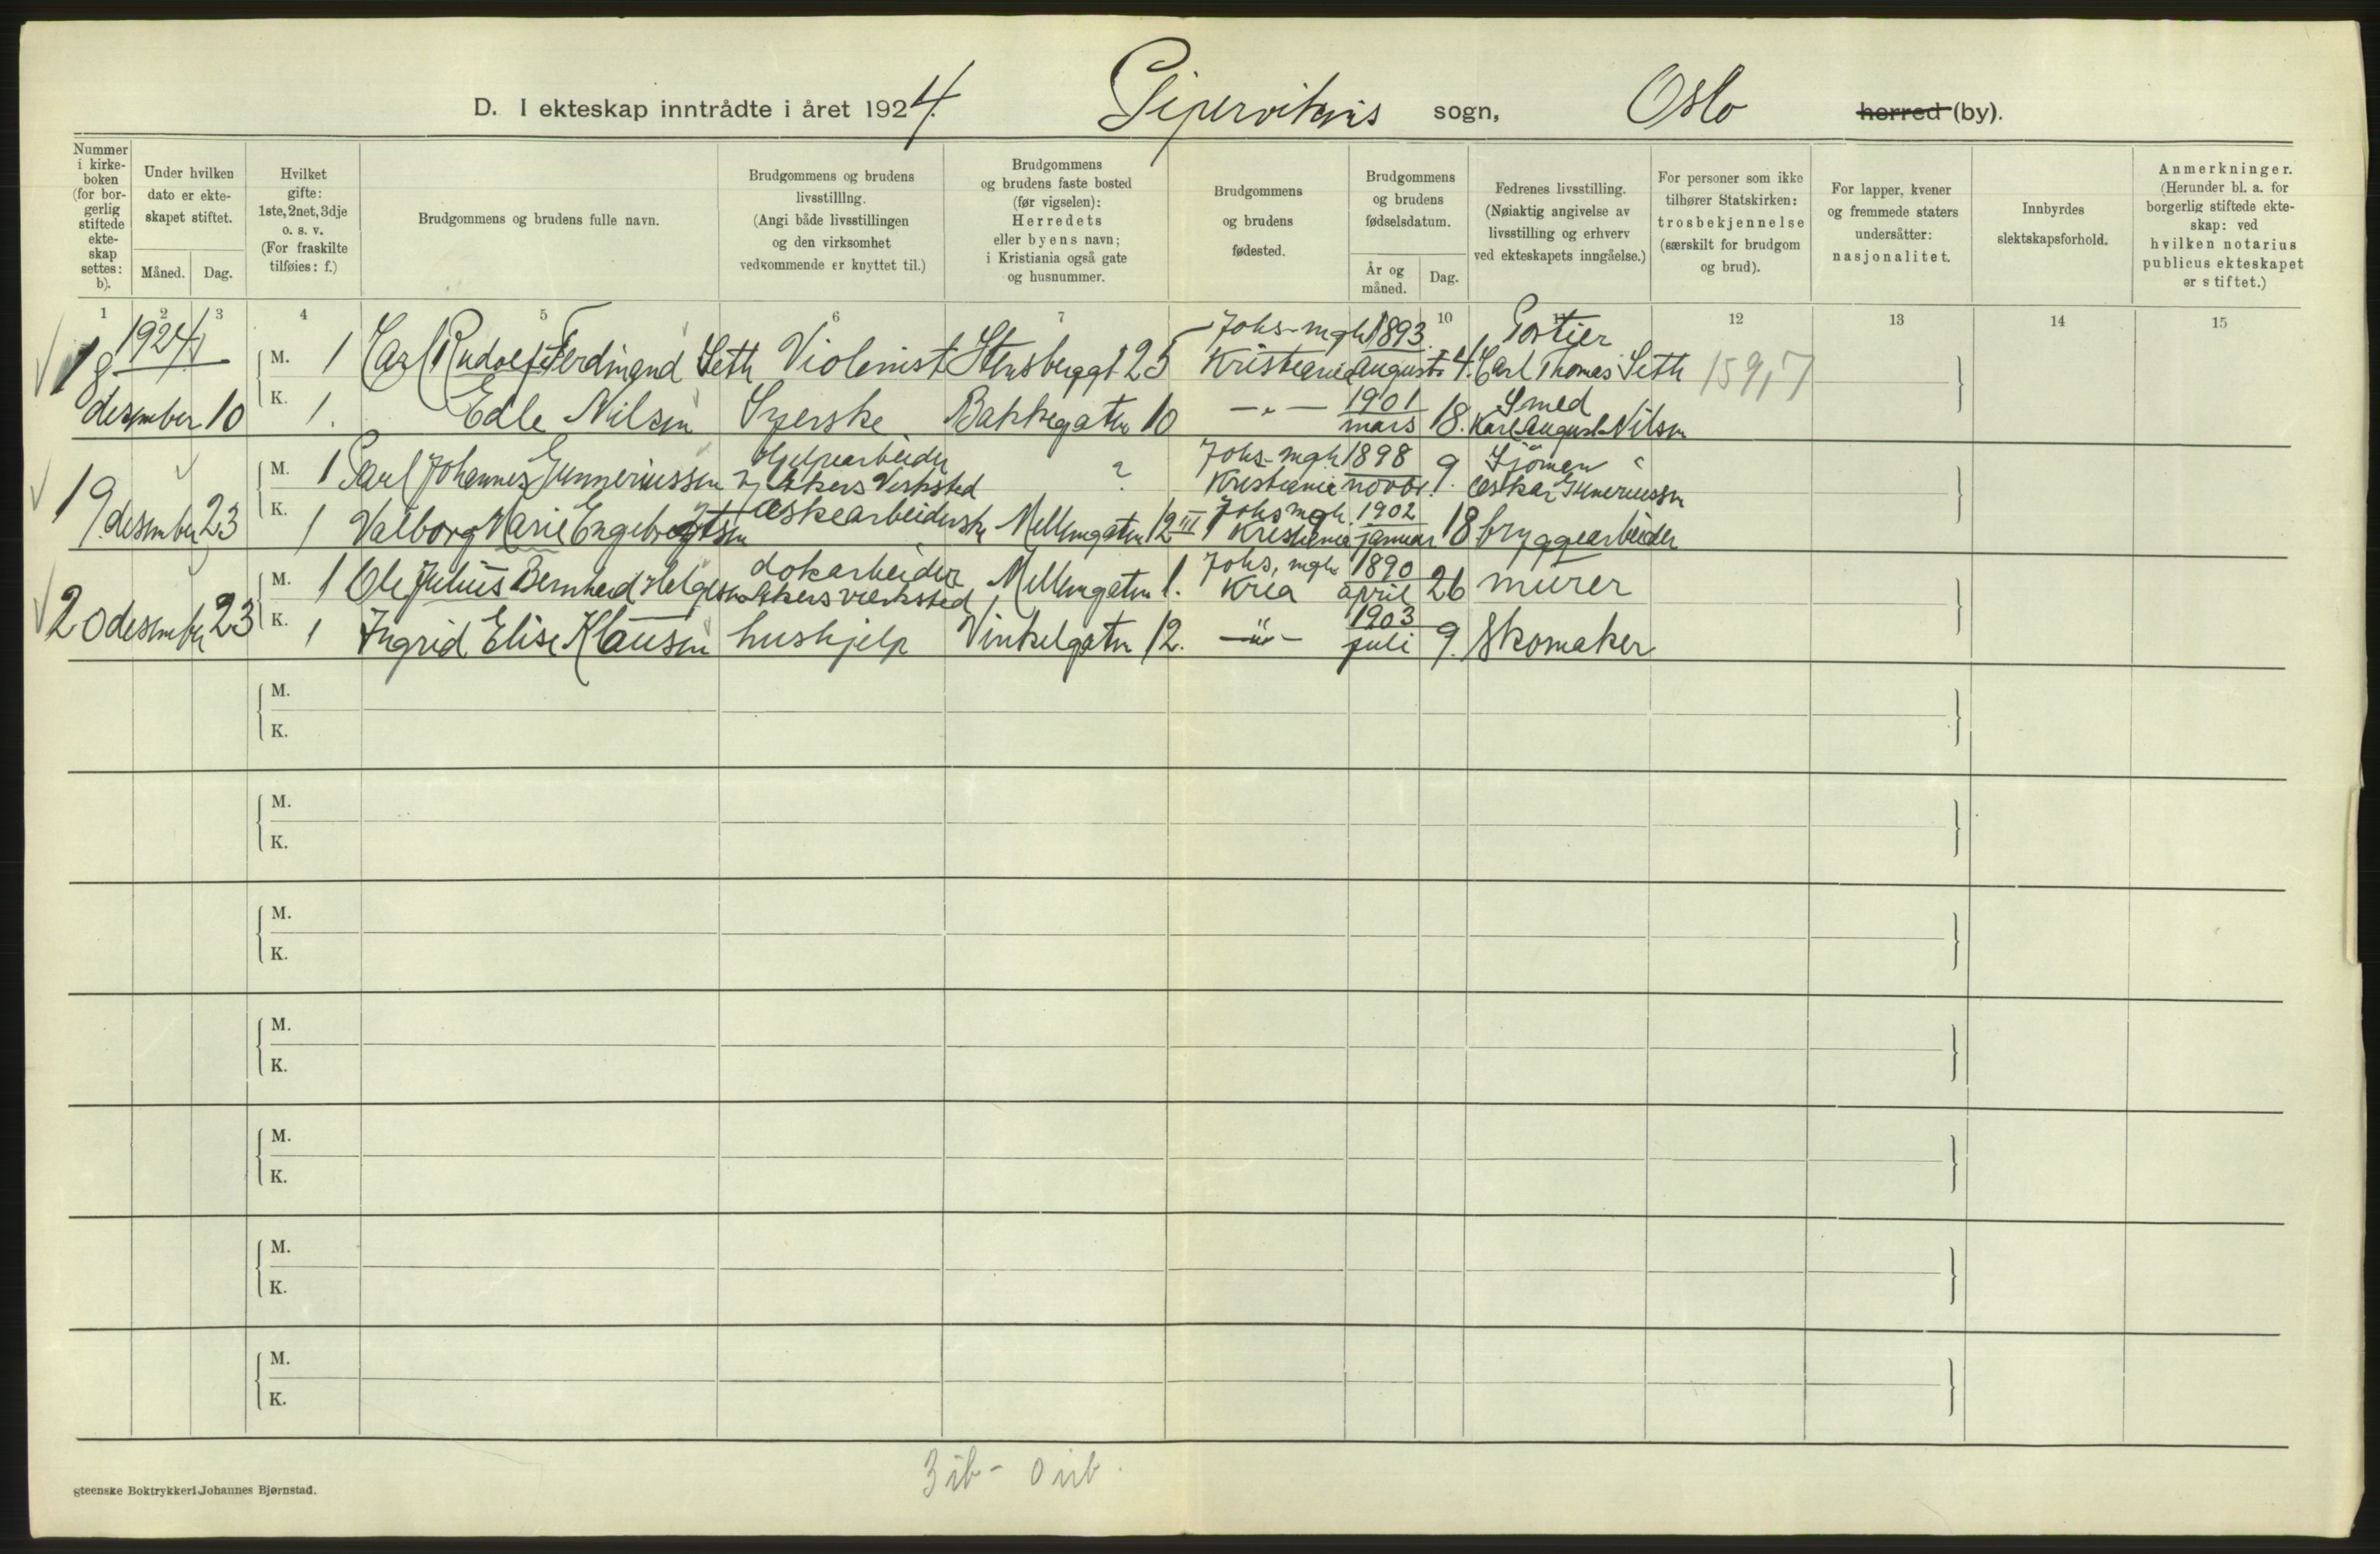 D. I ekteskap inntrådte i året 1924. Pipervikens sogn, Oslo herred (by).
Nummer i kirke-boken (for bor-gerlig stiftede ekte-skap settes: b).
Under hvilken dato er ekte-skapet stiftet.
Måned. Dag.
Hvilket gifte: 1ste, 2net, 3dje o. s. v. (For fraskilte tilføies: f.)
Brudgommens og brudens fulle navn.
Brudgommens og brudens livsstilling. (Angi både livsstillingen og den virksomhet vedkommende er knyttet til.)
Brudgommens og brudens faste bosted (før vigselen): Herredets eller byens navn; i Kristiania også gate og husnummer.
Brudgommens og brudens fødested.
Brudgommens og brudens fødselsdatum.
År og måned. Dag.
Fedrenes livsstilling. (Nøiaktig angivelse av livsstilling og erhverv ved ekteskapets inngåelse.)
For personer som ikke tilhører Statskirken: trosbekjennelse (særskilt for brudgom og brud).
For lapper, kvener og fremmede staters undersåtter: nasjonalitet.
Innbyrdes slektskapsforhold.
Anmerkninger. (Herunder bl. a. for borgerlig stiftede ekte-skap: ved hvilken notarius publicus ekteskapet er stiftet.)
1 2 3 4 5 6 7 10 12 13 14 15
1924
18 M. 1 Carl Rudolf Ferdinand Seth Violinist Stensberggt 25 Johs-mgh Kristiania 1893 august 4. Portier Carl Thomas Seth 159,7
desember 10 K. 1. Edle Nilsen Syerske Bakkegaten 10 -"- 1901 mars 18. Smed Karl August Nilsen
19 M. 1 Paul Johannes Gunneriussen Hjelpearbeider v/ Akers Verksted ? Johs-mgh Kristiania 1898 novbr. 9. Sjömen Oskar Guneriussen
desember 23 K. 1 Valborg Marie Engebregtsen Æskearbeiderske Mellemgaten 12 III Johs mgh. Kristiania 1902 januar 18 bryggearbeider
20 M. 1 Ole Julius Bernhard Helgesen dokarbeider Akers værksted Mellemgaten 1. Johs, mgh. Kria 1890 april 26 murer
desember 23 K. 1 Ingrid Elise Klausen hushjelp Vinkelgaten 12. -"- 1903 juli 9. Skomaker
M.
K.
M.
K.
M.
K.
M.
K.
M.
K.
M.
K.
M.
K.
3 ib - 0 iib.
steenske Boktrykkeri Johannes Bjørnstad.